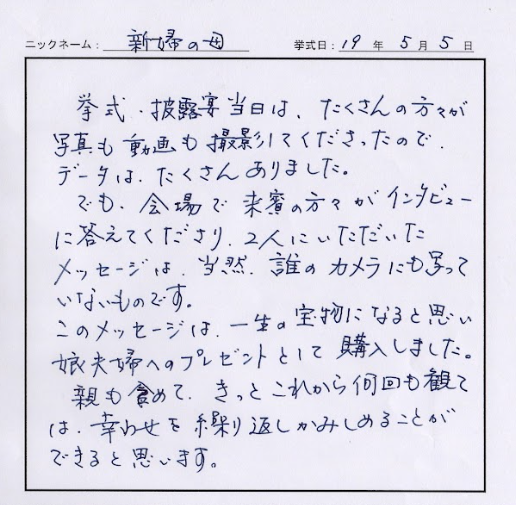 ニックネーム： 新婦の母 挙式日： 19 年 5 月 5 日
挙式・披露宴当日は、たくさんの方々が
写真も動画も撮影してくださったので、
データは、たくさんありました。
でも、会場で来賓の方々がインタビュー
に答えてくださり、2人にいただいた
メッセージは、当然、誰のカメラにも写って
いないものです。
このメッセージは、一生の宝物になると思い
娘夫婦へのプレゼントとして購入しました。
親も含めて、きっとこれから何回も観て
は、幸わせを繰り返しかみしめることが
できると思います。